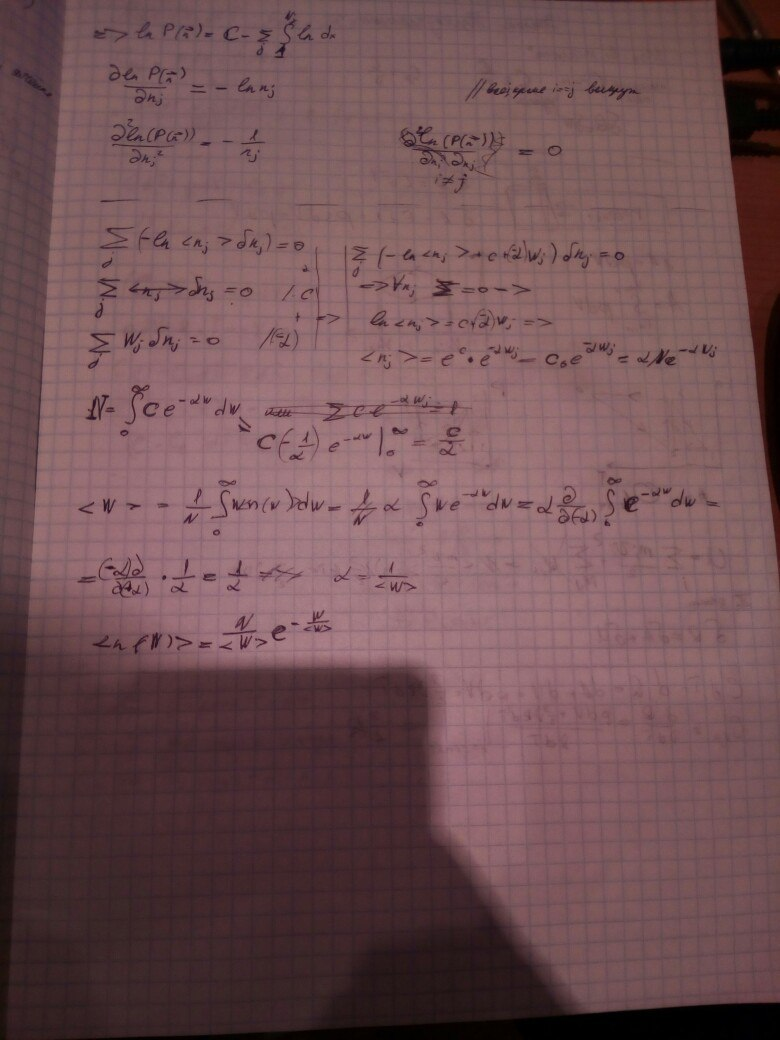 => ln P(n⃗) = C - Σ_j ∫_1^{n_j} ln dx
∂ln P(n⃗)/∂n_j = - ln n_j
∂²ln(P(n⃗))/∂n_j² = - 1/n_j     ∂²ln(P(n⃗))/∂n_i ∂n_j = 0
i≠j
Σ_j (-ln <n_j> δn_j) = 0     Σ_j (-ln <n_j> + c + (-α)W_j) δn_j = 0
Σ_j δn_j = 0   /·C     => ∀n_j Σ = 0 ->
+ =>   ln <n_j> = c + (-α)W_j =>
Σ_j W_j δn_j = 0   /(-α)     <n_j> = e^c · e^{-αW_j} = C_0 e^{-αW_j} = αNe^{-αW_j}
N = ∫_0^∞ C e^{-αW} dW =
C(-1/α) e^{-αW} |_0^∞ = C/α
<W> = 1/N ∫_0^∞ Wn(W)dW = 1/N α ∫_0^∞ We^{-αW}dW = α ∂/∂(-α) ∫_0^∞ e^{-αW}dW =
= (-α)∂/∂(-α) · 1/α = 1/α     α = 1/<W>
<n(W)> = N/<W> e^{-W/<W>}